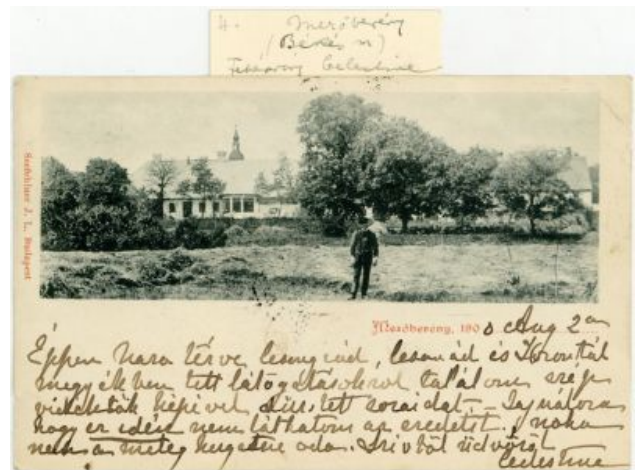 4. Mezőberény
(Békés m)
Celestine
Szobhlaer J. L., Budapest
Mezőberény, 1900 Aug 2án
Éppen haza térve Csongrád, Csanád és
megyékben tett látogatásokról találom szép
vidékök képivel díszített soraidat – Sajnálom
hogy ez idén nem láthatom az eredetit,
nem a meleg oda. Szivből üdvözöl
Celestine